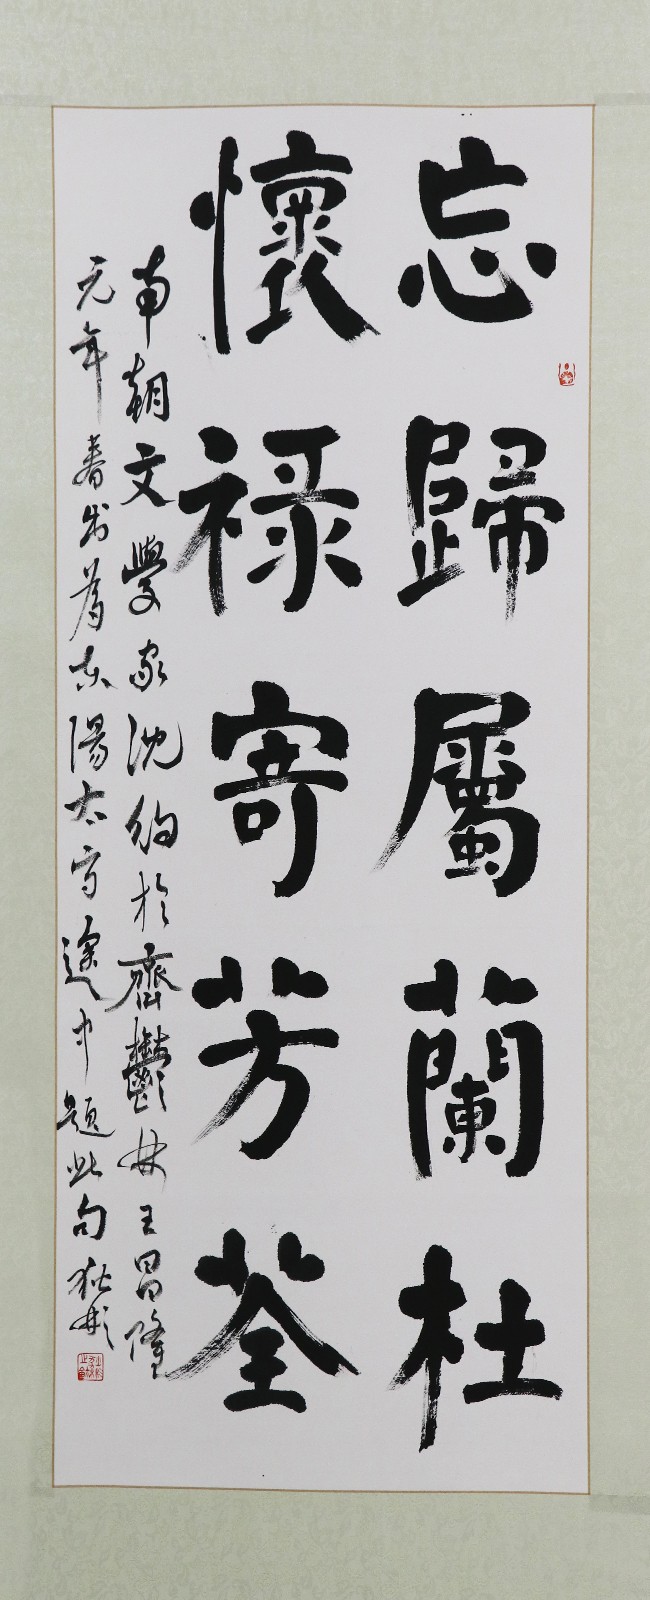 忘歸屬蘭杜
懷祿寄芳荃
南朝文學家沈約於齊鬱林王昌隆
元年春出為東陽太守途中題此句狄彬